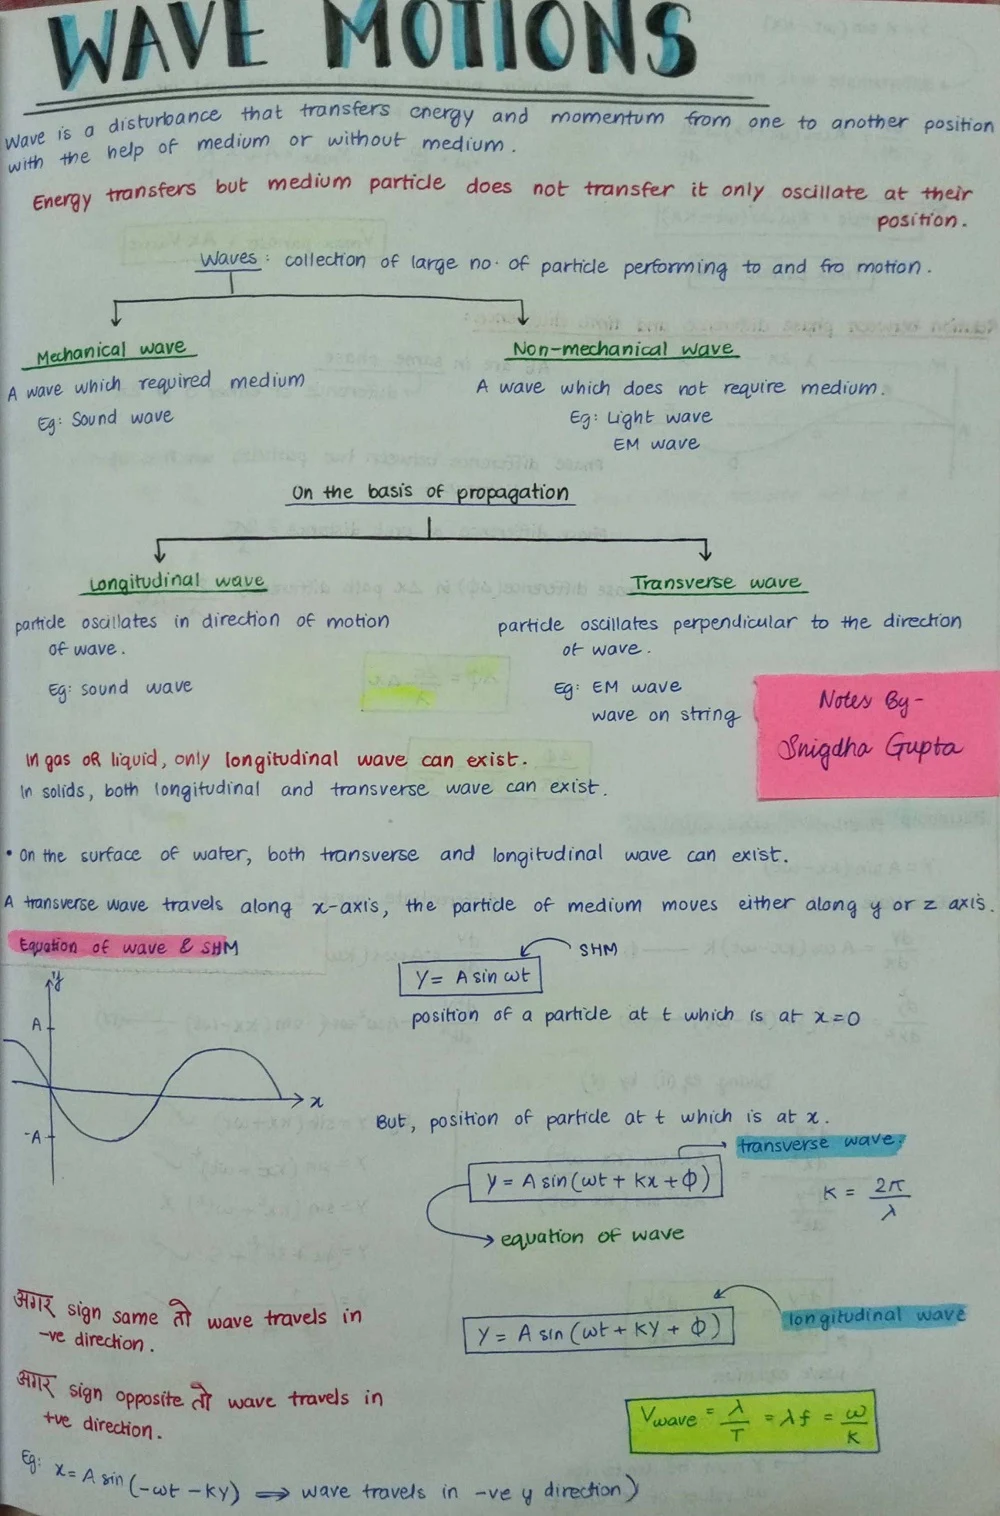 WAVE MOTIONS
Wave is a disturbance that transfers energy and momentum from one to another position
with the help of medium or without medium.
Energy transfers but medium particle does not transfer it only oscillate at their
position.
Waves: collection of large no. of particle performing to and fro motion.
Mechanical wave
Non-mechanical wave
A wave which required medium
A wave which does not require medium.
Eg: Sound wave
Eg: Light wave
EM wave
On the basis of propagation
Longitudinal wave
Transverse wave
particle oscillates in direction of motion
of wave.
particle oscillates perpendicular to the direction
of wave.
Eg: sound wave
Eg: EM wave
wave on string
Notes By-
Snigdha Gupta
In gas OR liquid, only longitudinal wave can exist.
In solids, both longitudinal and transverse wave can exist.
• On the surface of water, both transverse and longitudinal wave can exist.
A transverse wave travels along x-axis, the particle of medium moves either along y or z axis.
Equation of wave & SHM
SHM
Y = A sin ωt
position of a particle at t which is at x=0
y
A
x
-A
But, position of particle at t which is at x.
transverse wave.
y = A sin(ωt + kx + ϕ)
K = 2π/λ
equation of wave
अगर sign same तो wave travels in
-ve direction.
longitudinal wave
Y = A sin(ωt + ky + ϕ)
अगर sign opposite तो wave travels in
+ve direction.
Vwave = λ/T = λf = ω/K
Eg: x = A sin(-ωt - ky) ⟹ wave travels in -ve y direction)